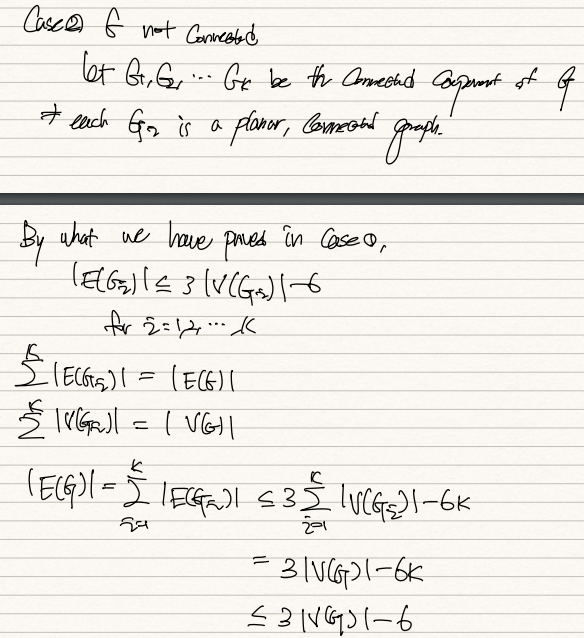 Case② G not Connected
let G₁, G₂, ... Gₖ be the Connected Component of G
⇒ each Gᵢ is a planar, Connected graph.
By what we have proved in Case①,
|E(Gᵢ)| ≤ 3|V(Gᵢ)|-6
for i=1,2,...k
∑ᵏ |E(Gᵢ)| = |E(G)|
∑ᵏ |V(Gᵢ)| = |V(G)|
|E(G)| = ∑ᵢ₌₁ᵏ |E(Gᵢ)| ≤ 3∑ᵢ₌₁ᵏ |V(Gᵢ)|-6k
= 3|V(G)|-6k
≤ 3|V(G)|-6